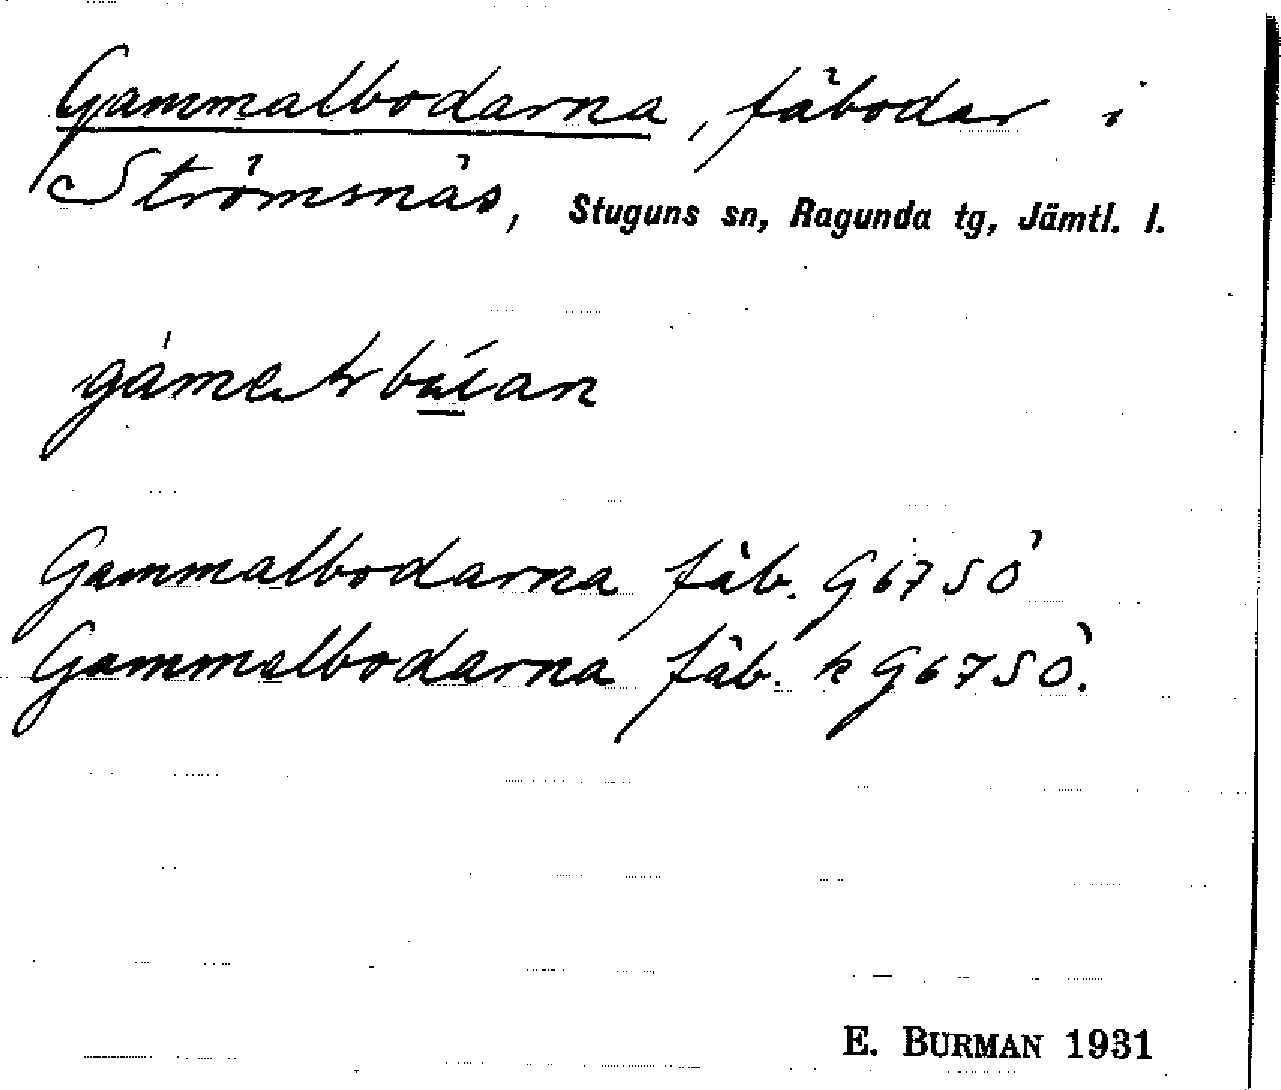 Gammalbodarna, fäbodar i
Strömsnäs, Stuguns sn, Ragunda tg, Jämtl. l.
Gammalbodarna fäb. G 67 SÖ
Gammalbodarna fäb. k G 67 SÖ.
E. BURMAN 1931